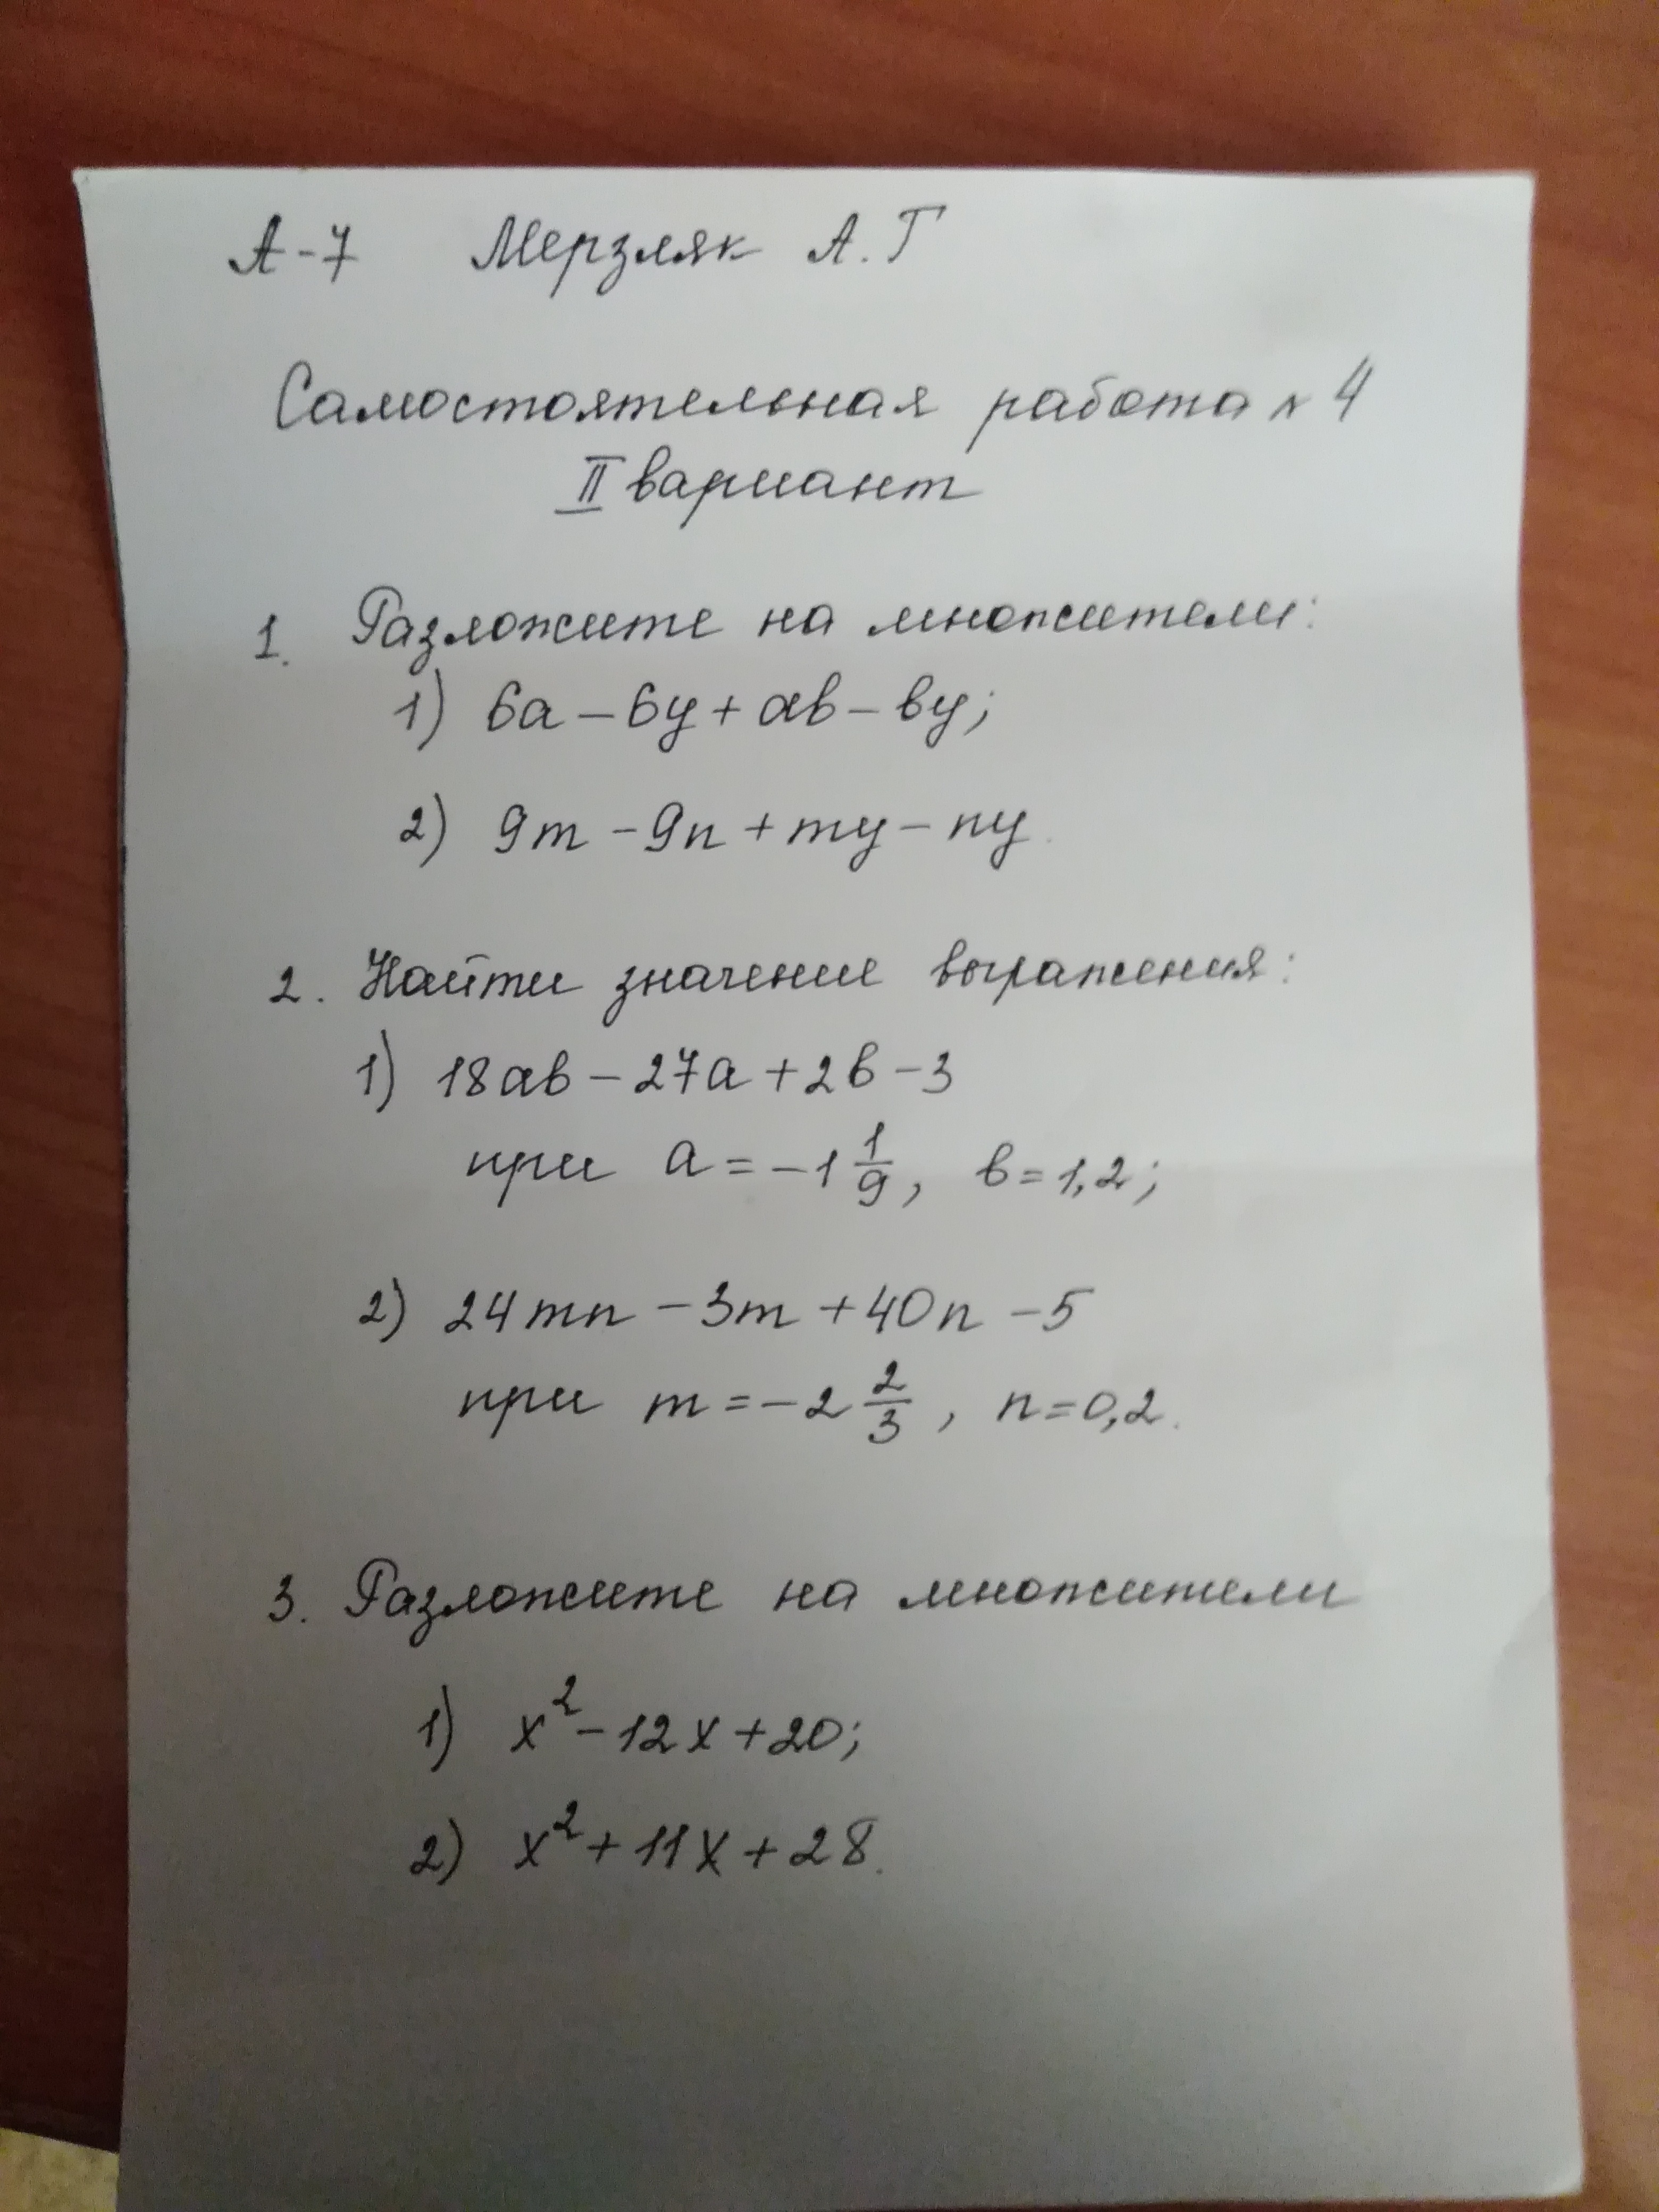 А-7 Мерзляк А.Г
Самостоятельная работа № 4
II вариант
1. Разложите на множители:
1) 6a - 6y + ab - by;
2) 9m - 9n + my - ny.
2. Найти значение выражения:
1) 18ab - 27a + 2b - 3
при a = -1 1/9, b = 1,2;
2) 24mn - 3m + 40n - 5
при m = -2 2/3, n = 0,2.
3. Разложите на множители
1) x² - 12x + 20;
2) x² + 11x + 28.